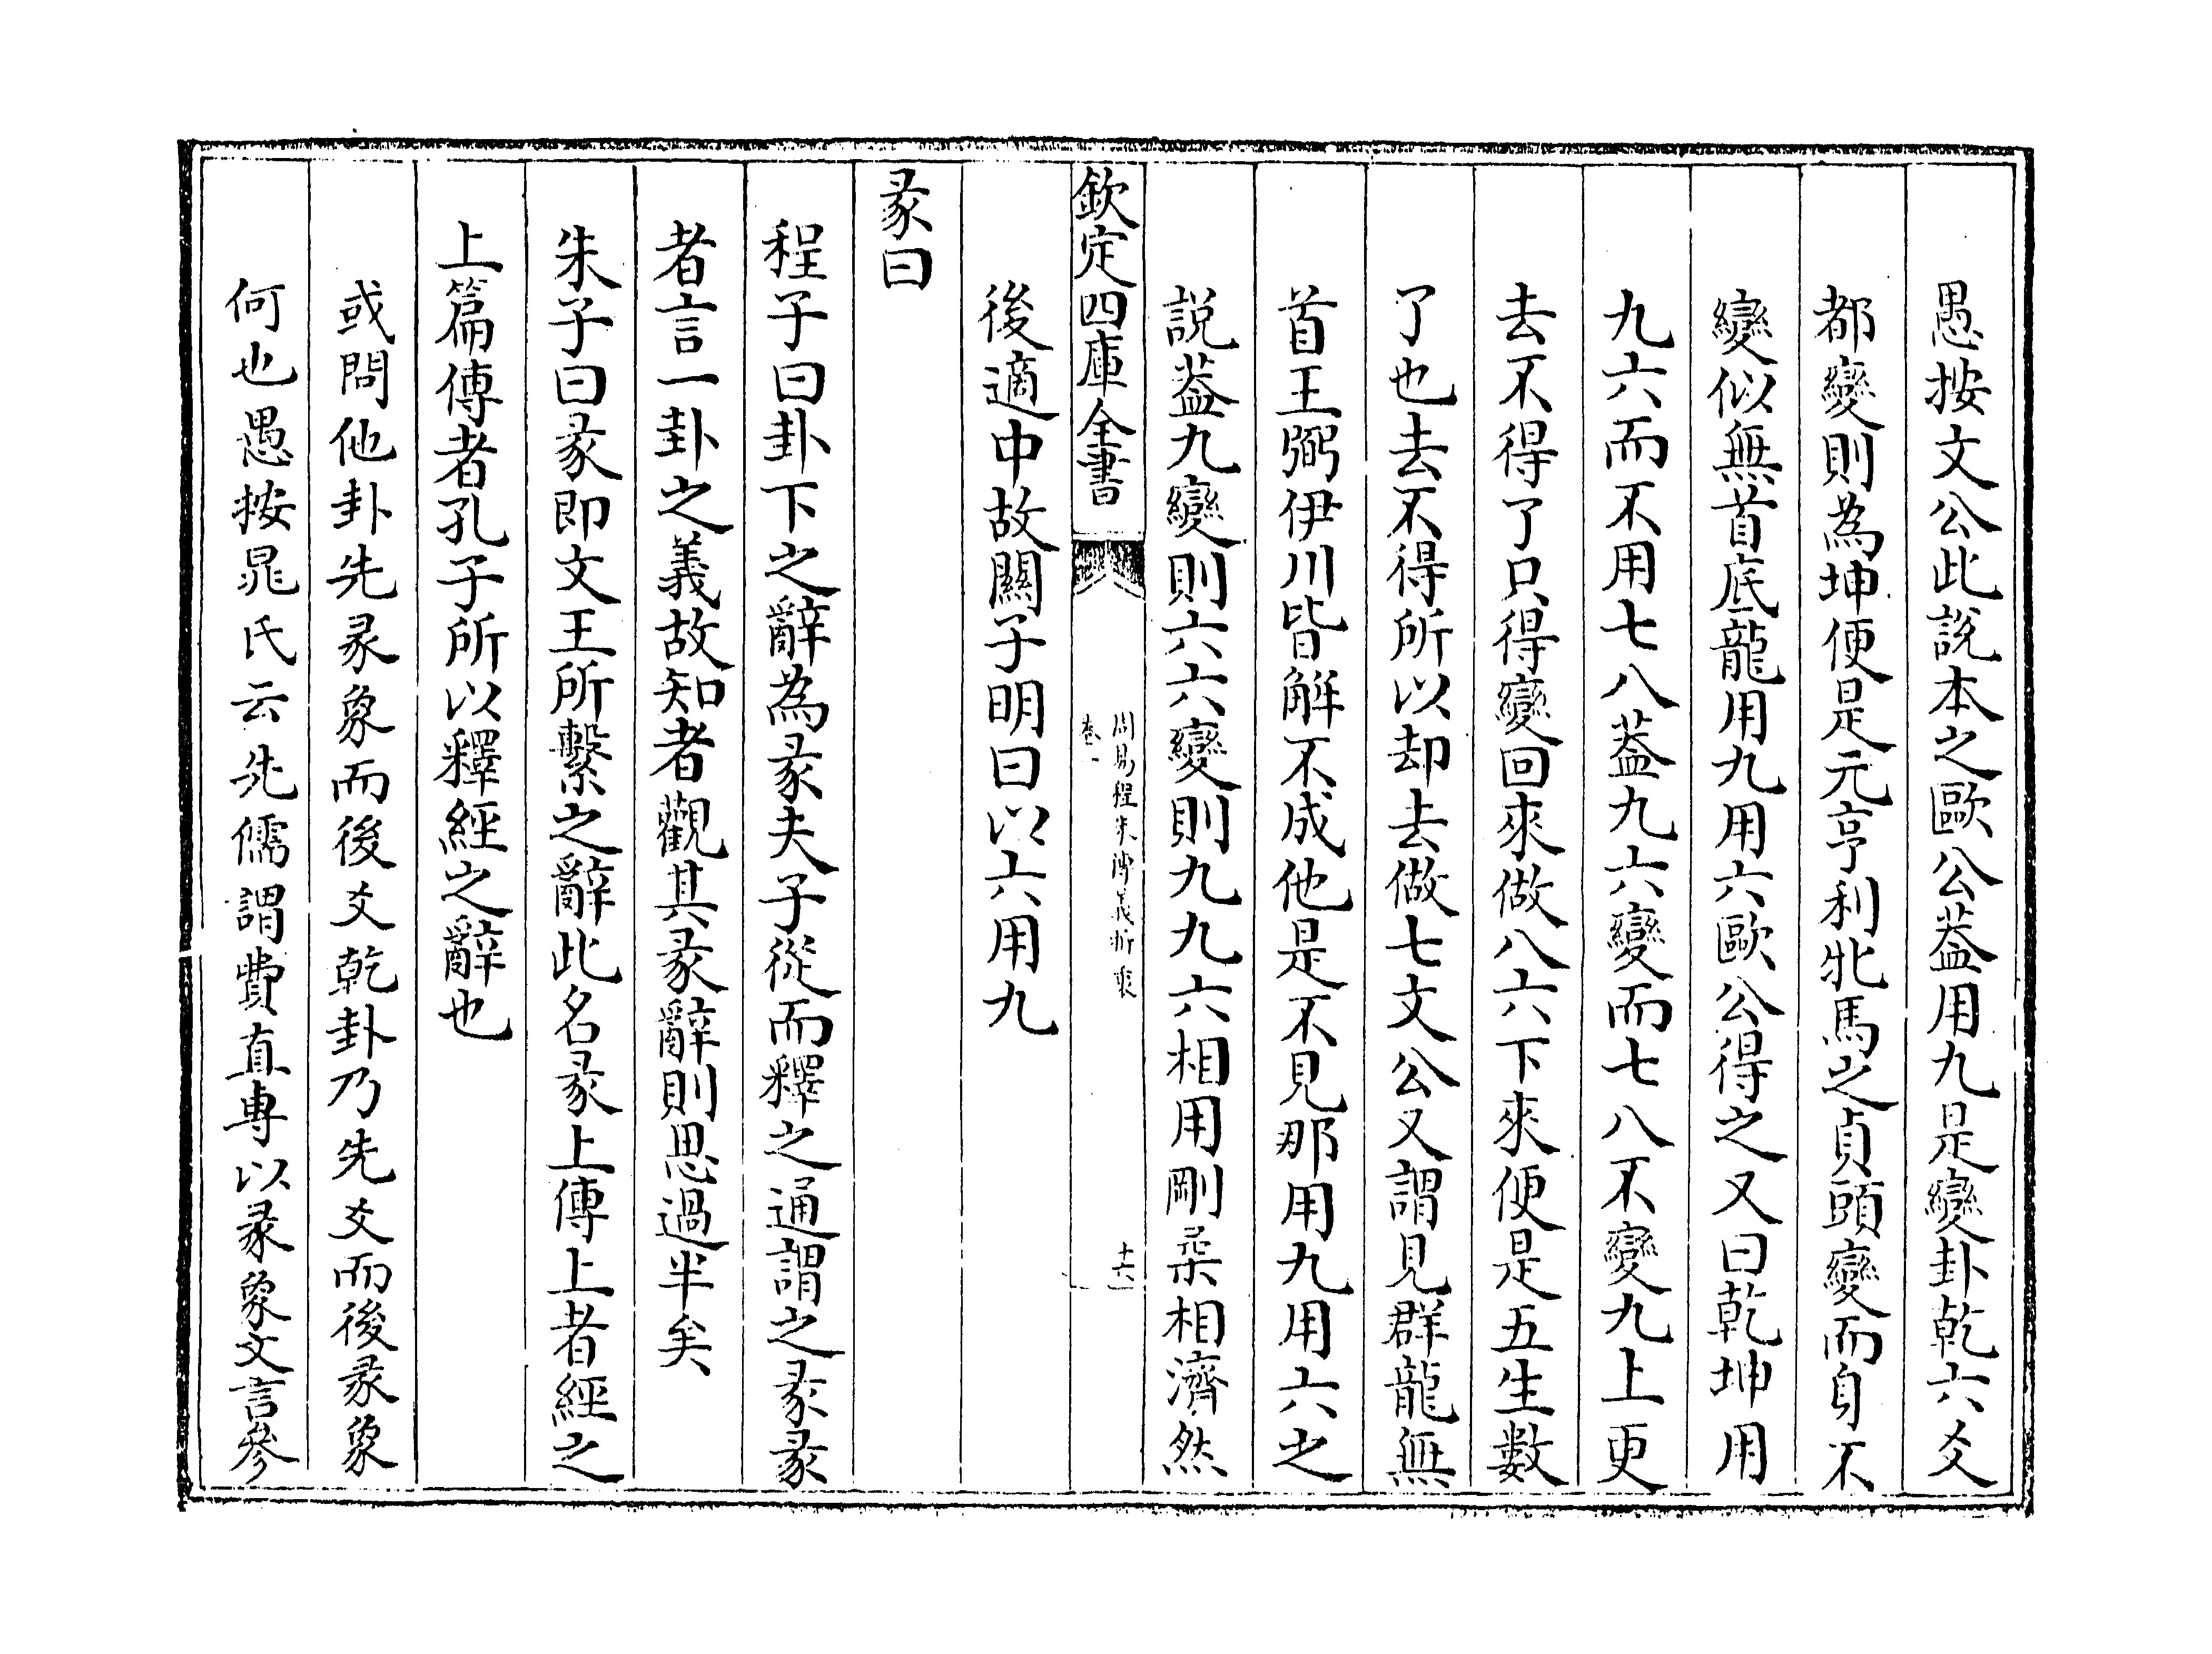 愚按文公此說本之歐公葢用九是變卦乾六爻
都變則為坤便是元亨利牝馬之貞頭變而身不
變似無首底龍用九用六歐公得之又曰乾坤用
九六而不用七八葢九六變而七八不變九上更
去不得了只得變回來做八六下來便是五生數
了也去不得所以却去做七文公又謂見群龍無
首王弼伊川皆解不成他是不見那用九用六之
說葢九變則六六變則九九六相用剛柔相濟然
欽定四庫全書
周易程朱傳義折衷
卷一
十六
後適中故關子明曰以六用九
彖曰
程子曰卦下之辭為彖夫子從而釋之通謂之彖彖
者言一卦之義故知者觀其彖辭則思過半矣
朱子曰彖即文王所繫之辭此名彖上傳上者經之
上篇傳者孔子所以釋經之辭也
或問他卦先彖象而後爻乾卦乃先爻而後彖象
何也愚按晁氏云先儒謂費直專以彖象文言參